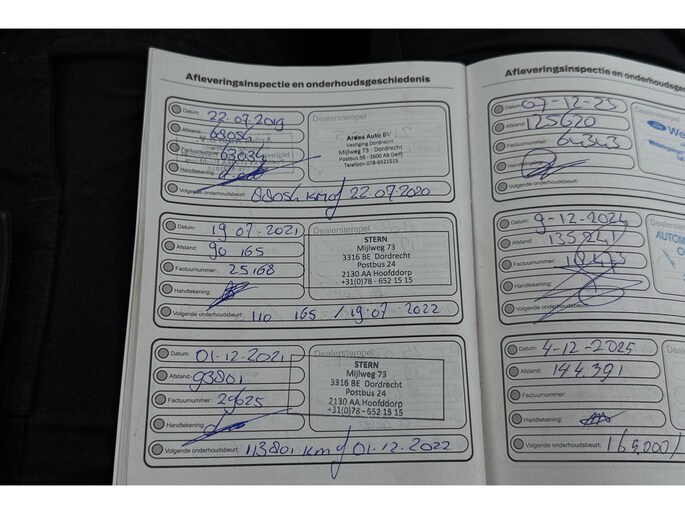 Afleveringsinspectie en onderhoudsgeschiedenis
Datum: 22.07.2019
Afstand: 68054
Factuurnummer: 63634
Handtekening:
Volgende onderhoudsbeurt: 88054 km of 22.07.2020
Dealerstempel
Ardea Auto BV
Vestiging Dordrecht
Mijlweg 73 - Dordrecht
Postbus 56 - 2600 AB Delft
Telefoon 078-6521515
Datum: 19 07 - 2021
Afstand: 90 165
Factuurnummer: 25168
Handtekening:
Volgende onderhoudsbeurt: 110 165 / 19.07 - 2022
Dealerstempel
STERN
Mijlweg 73
3316 BE Dordrecht
Postbus 24
2130 AA Hoofddorp
+31(0)78 - 652 15 15
Datum: 01-12-2021
Afstand: 93801
Factuurnummer: 29625
Handtekening:
Volgende onderhoudsbeurt: 113801 km of 01-12-2022
Dealerstempel
STERN
Mijlweg 73
3316 BE Dordrecht
Postbus 24
2130 AA Hoofddorp
+31(0)78 - 652 15 15
Afleveringsinspectie en onderhoudsge
Datum: 07-12-23
Afstand: 125620
Factuurnummer: 64343
Handtekening:
Volgende onderhoudsbeurt:
Dealerstempel
Ford We
Datum: 9-12-2024
Afstand: 135241
Factuurnummer:
Handtekening:
Volgende onderhoudsbeurt:
Deale
AUTOM
Datum: 4-12-2025
Afstand: 144.391
Factuurnummer:
Handtekening:
Volgende onderhoudsbeurt: 165,000/
Deale